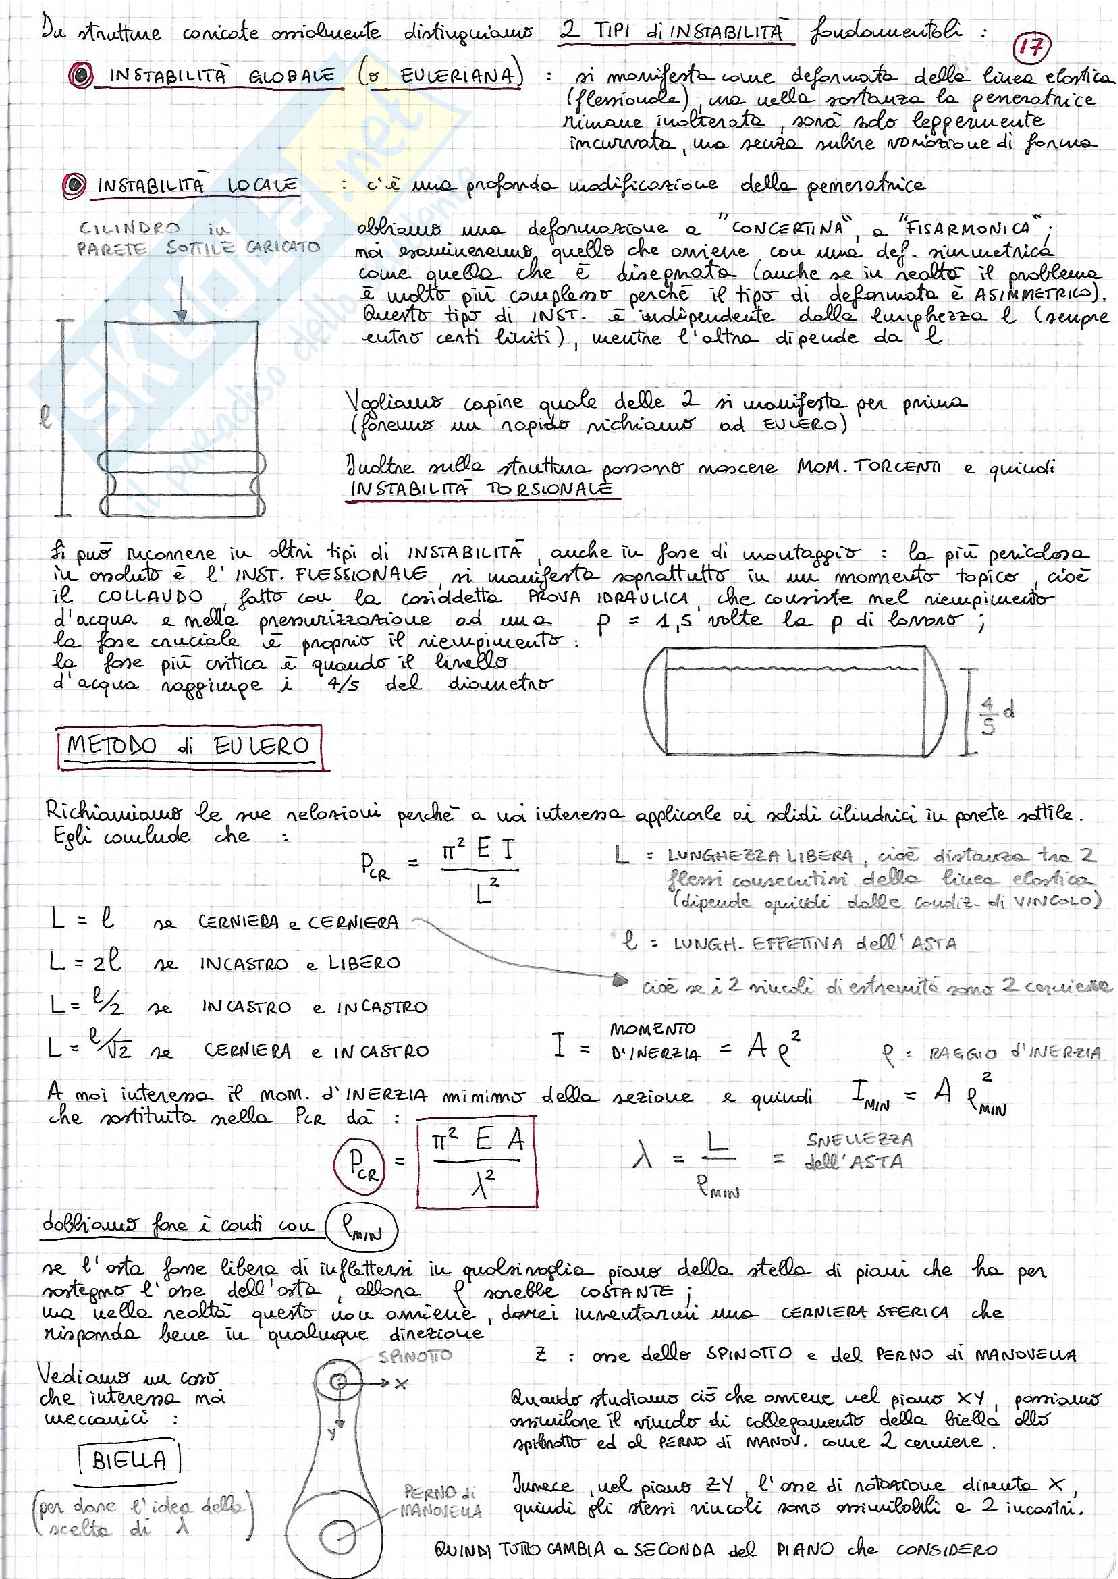 Da strutture caricate assialmente distinguiamo 2 TIPI di INSTABILITÀ fondamentali :
17
INSTABILITÀ GLOBALE (o EULERIANA) : si manifesta come deformata della linea elastica
(flessionale), ma nella sostanza la generatrice
rimane inalterata, sarà solo leggermente
incurvata, ma senza subire variazione di forma
INSTABILITÀ LOCALE : c'è una profonda modificazione della generatrice
CILINDRO in
PARETE SOTTILE CARICATO
abbiamo una deformazione a "CONCERTINA", a "FISARMONICA";
noi esamineremo quello che avviene con una def. simmetrica
come quella che è disegnata (anche se in realtà il problema
è molto più complesso perchè il tipo di deformata è ASIMMETRICO).
Questo tipo di INST. è indipendente dalla lunghezza l (sempre
entro certi limiti), mentre l'altra dipende da l
l
Vogliamo capire quale delle 2 si manifesta per prima
(faremo un rapido richiamo ad EULERO)
Inoltre sulla struttura possono nascere MOM. TORCENTI e quindi
INSTABILITÀ TORSIONALE
Si può incorrere in altri tipi di INSTABILITÀ, anche in fase di montaggio : la più pericolosa
in assoluto è l'INST. FLESSIONALE, si manifesta soprattutto in un momento topico, cioè
il COLLAUDO, fatto con la cosiddetta PROVA IDRAULICA, che consiste nel riempimento
d'acqua e nella pressurizzazione ad una p = 1,5 volte la p di lavoro ;
la fase cruciale è proprio il riempimento :
la fase più critica è quando il livello
d'acqua raggiunge i 4/5 del diametro
4/5 d
METODO di EULERO
Richiamiamo le sue relazioni perchè a noi interessa applicarle ai solidi cilindrici in parete sottile.
Egli conclude che :
P_CR = π² E I / L²
L = LUNGHEZZA LIBERA, cioè distanza tra 2
flessi consecutivi della linea elastica
(dipende quindi dalle condiz. di VINCOLO)
L = l se CERNIERA e CERNIERA
l = LUNGH. EFFETTIVA dell'ASTA
L = 2l se INCASTRO e LIBERO
cioè se i 2 vincoli di estremità sono 2 cerniere
L = l/2 se INCASTRO e INCASTRO
L = l/√2 se CERNIERA e INCASTRO
I = MOMENTO D'INERZIA = A ρ²
ρ = RAGGIO d'INERZIA
A noi interessa il MOM. d'INERZIA minimo della sezione e quindi I_MIN = A ρ²_MIN
che sostituita nella P_CR dà :
P_CR = π² E A / λ²
λ = L / ρ_MIN = SNELLEZZA dell'ASTA
dobbiamo fare i conti con ρ_MIN
se l'asta fosse libera di inflettersi in qualsivoglia piano della stella di piani che ha per
sostegno l'asse dell'asta, allora ρ sarebbe COSTANTE ;
ma nella realtà questo non avviene, dovrei inventarmi una CERNIERA SFERICA che
risponda bene in qualunque direzione
SPINOTTO
x
y
Z : asse dello SPINOTTO e del PERNO di MANOVELLA
Vediamo un caso
che interessa noi
meccanici :
Quando studiamo ciò che avviene nel piano XY, possiamo
assimilare il vincolo di collegamento della biella allo
spinotto ed al PERNO di MANOV. come 2 cerniere.
BIELLA
(per dare l'idea della
scelta di λ)
PERNO di
MANOVELLA
Invece, nel piano ZY, l'asse di rotazione diventa X,
quindi gli stessi vincoli sono assimilabili a 2 incastri.
QUINDI TUTTO CAMBIA a SECONDA del PIANO che CONSIDERO